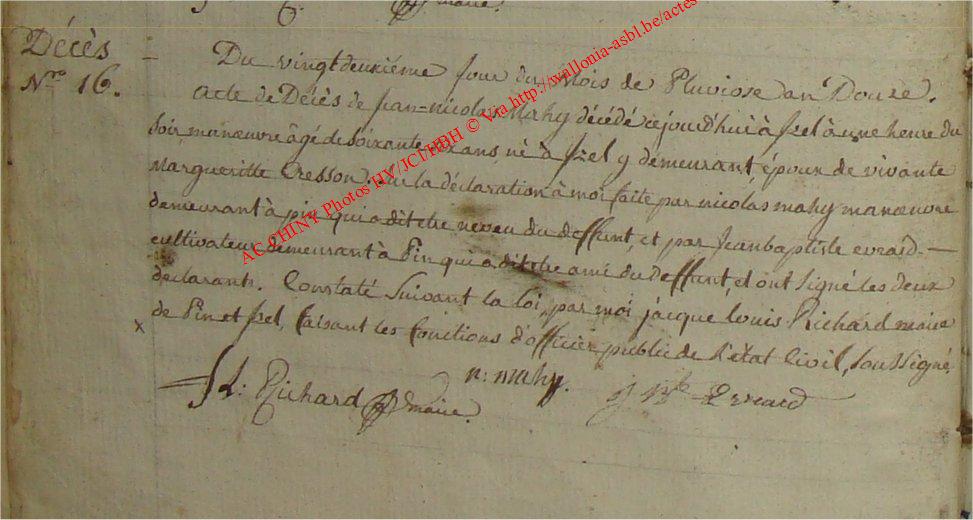 maire.
Décès
Nro 16.
Du vingtdeuxiéme jour du Mois de Pluviose an Douze.
Acte de Décès de jean-nicolas Mahy décédé cejourd'huì à Izel à une heure du
Soir manœuvre âgé de soixante ans, né à Izel y demeurant époux de vivante
Margueritte Cresson. Sur la déclaration à moi faite par nicolas mahy manœuvre
demeurant à pin qui a dit etre neveu du deffunt, et par Jeanbaptiste evrard
cultivateur demeurant à Pin qui a dit etre ami du deffunt, et ont signé les deux
declarants. Constaté Suivant la loi, par moi jacque louis Richard maire
x de Pin et Izel, faisant les fonctions d'officier public de l'état Civil, Soussigné.
J L: Richard maire. n: mahy. j Bte Evrard
AC CHINY Photos HY/JCI/HBH © Via http://wallonia-asbl.be/actes